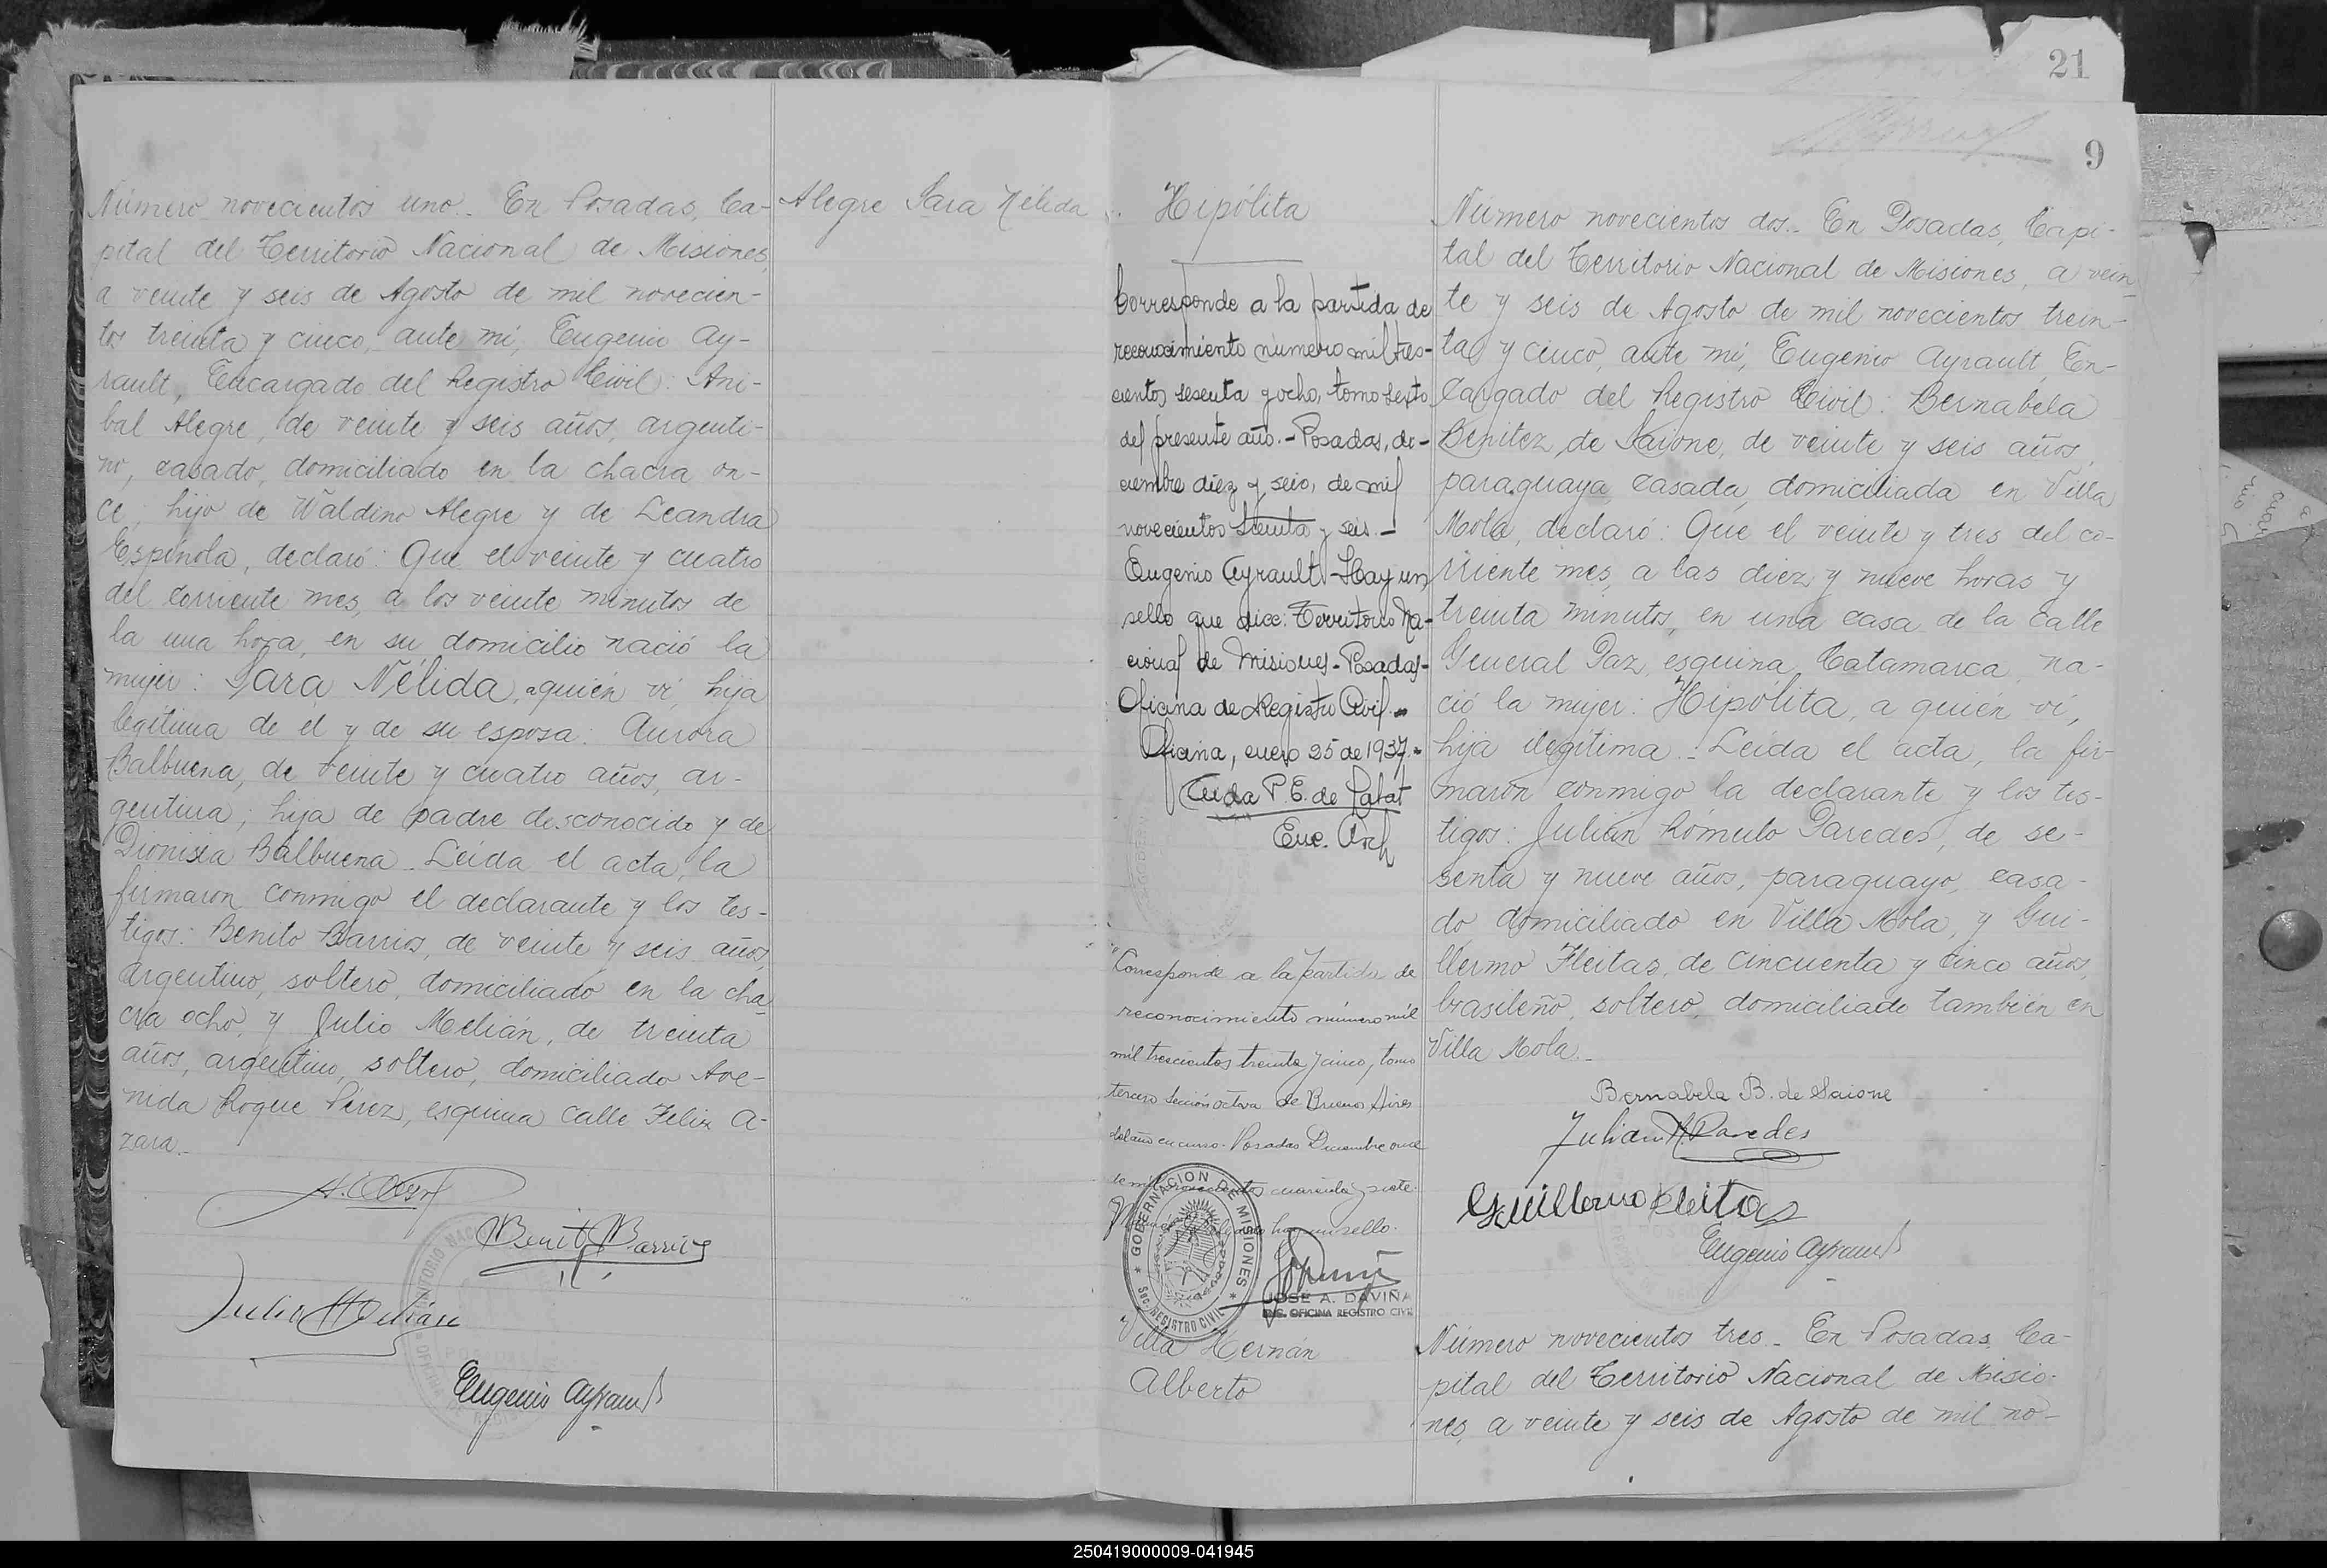 21
9
Número novecientos uno.- En Posadas, Ca-
pital del Territorio Nacional de Misiones,
a veinte y seis de Agosto de mil novecien-
tos treinta y cinco, ante mi, Eugenio Ay-
rault, Encargado del Registro Civil: Aní-
bal Alegre, de veinte y seis años, argenti-
no, casado, domiciliado en la chacra on-
ce, hijo de Waldino Alegre y de Leandra
Espínola, declaró: Que el veinte y cuatro
del corriente mes, a los veinte minutos de
la una hora, en su domicilio nació la
mujer: Sara Nélida, a quién ví, hija
legítima de el y de su esposa: Aurora
Balbuena, de veinte y cuatro años, ar-
gentina; hija de padre desconocido y de
Dionisia Balbuena.- Leída el acta, la
firmaron conmigo el declarante y los tes-
tigos: Benito Barrios, de veinte y seis años,
argentino, soltero, domiciliado en la cha-
cra ocho, y Julio Melián, de treinta
años, argentino, soltero, domiciliado Ave-
nida Roque Pérez, esquina calle Felix A-
zara.-
Benito Barrios
Julio Melián
Eugenio Ayrault
Alegre Sara Nélida
Hipólita
Corresponde a la partida de
reconocimiento número mil tres-
cientos sesenta y ocho, tomo sexto
del presente año.- Posadas, di-
ciembre diez y seis, de mil
novecientos treinta y seis.-
Eugenio Ayrault.- Hay un
sello que dice: Territorio Na-
cional de Misiones- Posadas-
Oficina de Registro Civil.-
Oficina, enero 25 de 1937.-
P. E. de
Enc. Arch
Corresponde a la partida de
reconocimiento número mil
mil trescientos treinta y cinco, tomo
tercero Sección octava de Buenos Aires
del año en curso. Posadas Diciembre once
de mil novecientos cuarenta y siete.
hay un sello.
GOBERNACION DE MISIONES
Sec. REGISTRO CIVIL
JOSE A. DAVIÑA
ENC. OFICINA REGISTRO CIVIL
Villa Hernán
Alberto
Número novecientos dos.- En Posadas, Capi-
tal del Territorio Nacional de Misiones, a vein-
te y seis de Agosto de mil novecientos trein-
ta y cinco, ante mi, Eugenio Ayrault, En-
cargado del Registro Civil: Bernabela
Benitez de Saione, de veinte y seis años,
paraguaya, casada, domiciliada en Villa
Mola, declaró: Que el veinte y tres del co-
rriente mes, a las diez y nueve horas y
treinta minutos, en una casa de la calle
General Paz, esquina Catamarca, na-
ció la mujer: Hipólita, a quién ví,
hija ilegítima.- Leída el acta, la fir-
maron conmigo la declarante y los tes-
tigos: Julián Rómulo Paredes, de se-
senta y nueve años, paraguayo, casa-
do domiciliado en Villa Mola, y Gui-
llermo Fleitas, de cincuenta y cinco años,
brasileño, soltero, domiciliado también en
Villa Mola.-
Bernabela B. de Saione
Julian R Paredes
Guillermo Fleitas
Eugenio Ayrault
Número novecientos tres.- En Posadas, Ca-
pital del Territorio Nacional de Misio-
nes, a veinte y seis de Agosto de mil no-
250419000009-041945